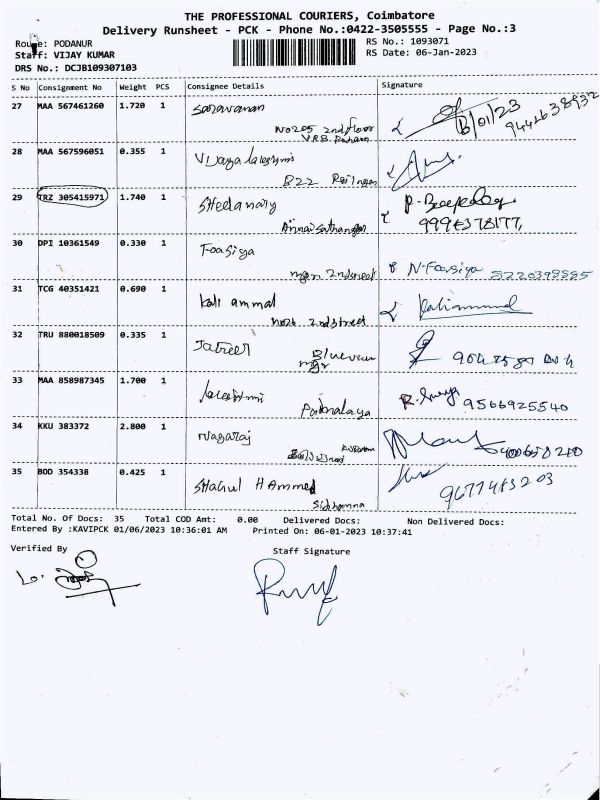 THE PROFESSIONAL COURIERS, Coimbatore
Delivery Runsheet - PCK - Phone No.:0422-3505555 - Page No.:3
Route: PODANUR
RS No.: 1093071
Staff: VIJAY KUMAR
RS Date: 06-Jan-2023
DRS No.: DCJB109307103
S No Consignment No Weight PCS Consignee Details Signature
27 MAA 567461260 1.720 1 Saravanan
No 205 2nd floor
9442638932
28 MAA 567596051 0.355 1 Vijaya lakshmi
B22
29 TRZ 305415971 1.740 1 Sheela mary
30 DPI 10361549 0.330 1 Foasiya
2nd street N. Foasiya
31 TCG 40351421 0.690 1 Kali ammal
No 26 2nd street Kaliammal
32 TRU 880018509 0.335 1 Jabeer
Blueview
33 MAA 858987345 1.700 1 lakshmi
9566925540
34 KKU 383372 2.800 1 Nagaraj
35 BOD 354338 0.425 1 Shahul Hammed
9677483203
Total No. Of Docs: 35 Total COD Amt: 0.00 Delivered Docs: Non Delivered Docs:
Entered By :KAVIPCK 01/06/2023 10:36:01 AM Printed On: 06-01-2023 10:37:41
Verified By
Staff Signature